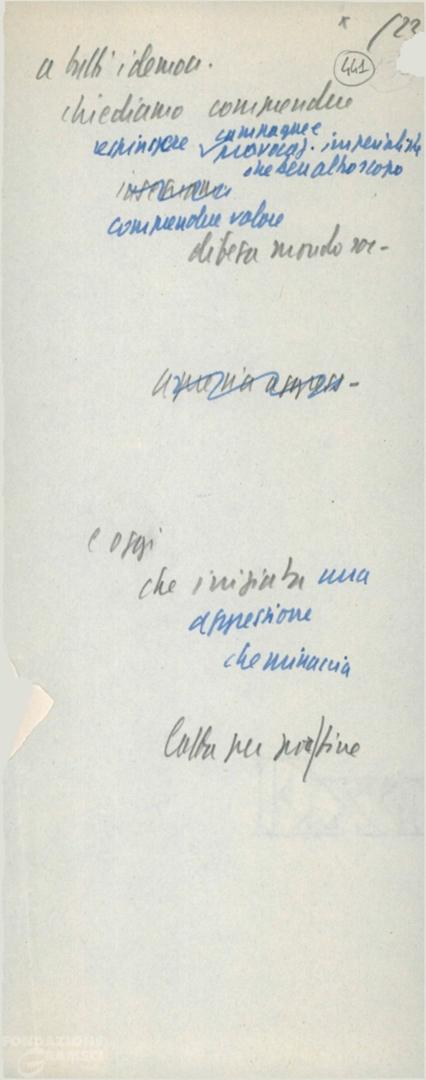 /23
441
a tutti i democr.
chiediamo comprendere
respingere campagne e
provocaz. imperialiste
che ben altro scopo
comprendere valore
difesa mondo soc-
e oggi
che iniziata una
aggressione
che minaccia
lotta per
FONDAZIONE
GRAMSCI